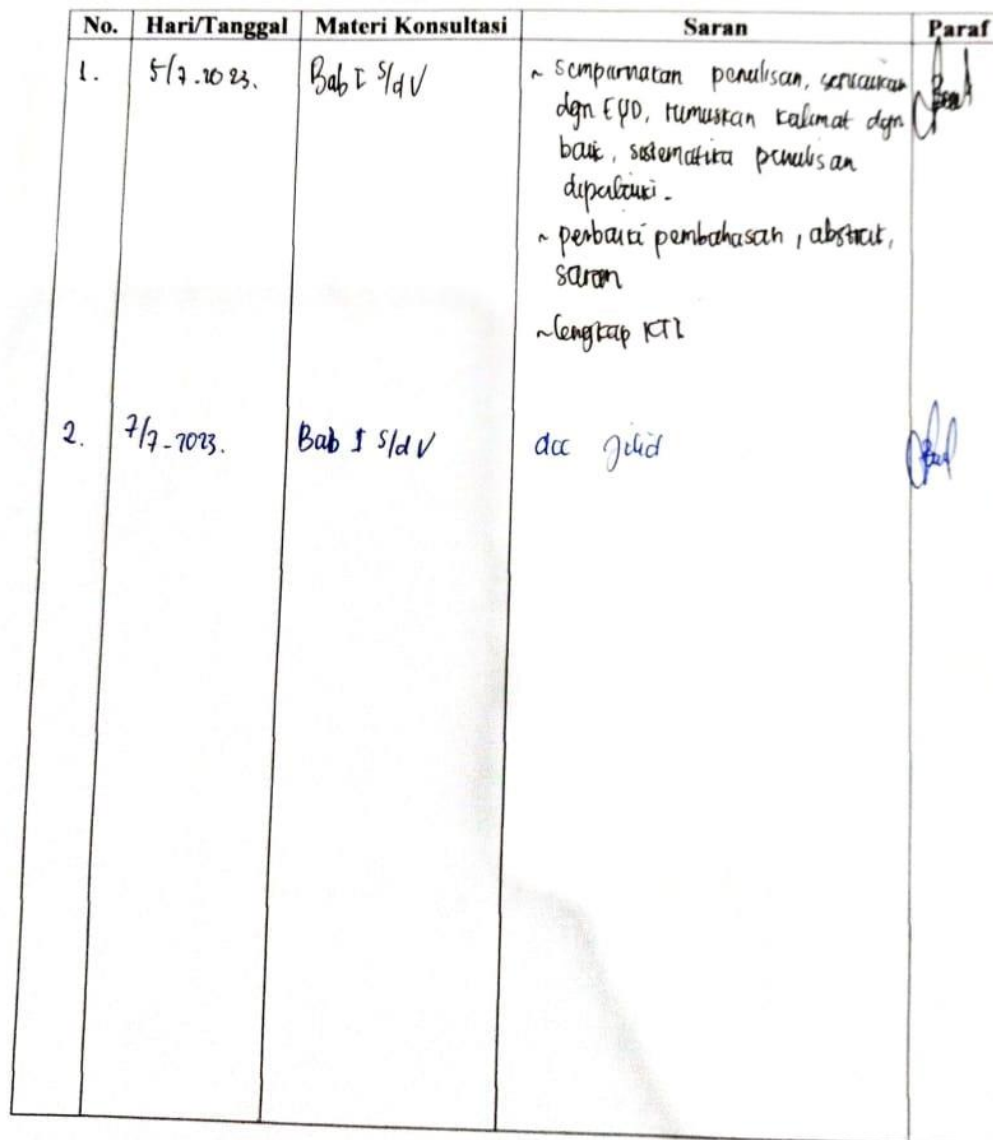 No. Hari/Tanggal Materi Konsultasi Saran Paraf
1. 5/7-2023. Bab I s/d V ~ Sempurnakan penulisan, sesuaikan
dgn EYD, rumuskan kalimat dgn
baik, sistematika penulisan
diperbaiki.
~ perbaiki pembahasan, abstrak,
saran
~ lengkap KTI
2. 7/7-2023. Bab I s/d V acc Jilid